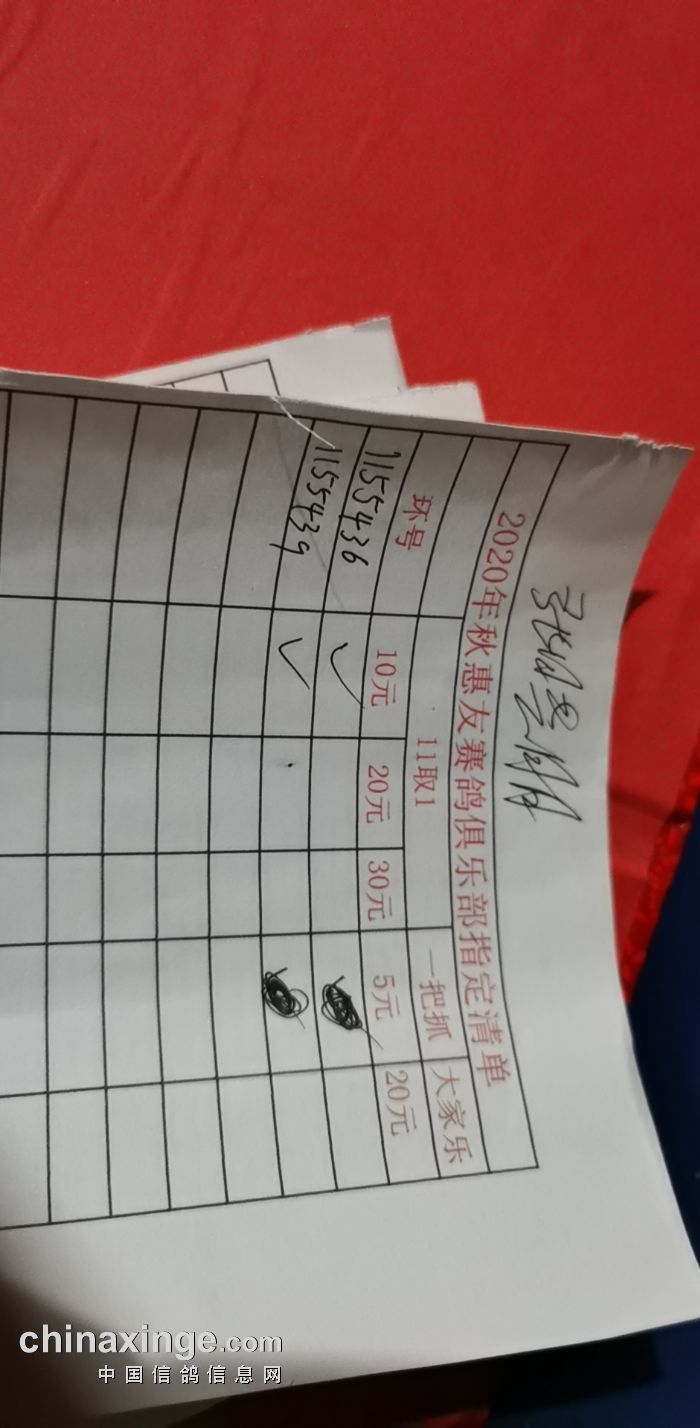 2020年秋惠友赛鸽俱乐部指定清单
环号 11取1 一把抓 大家乐
10元 20元 30元 5元 20元
1155436 ✓
1155439 ✓
chinaxinge.com
中国信鸽信息网